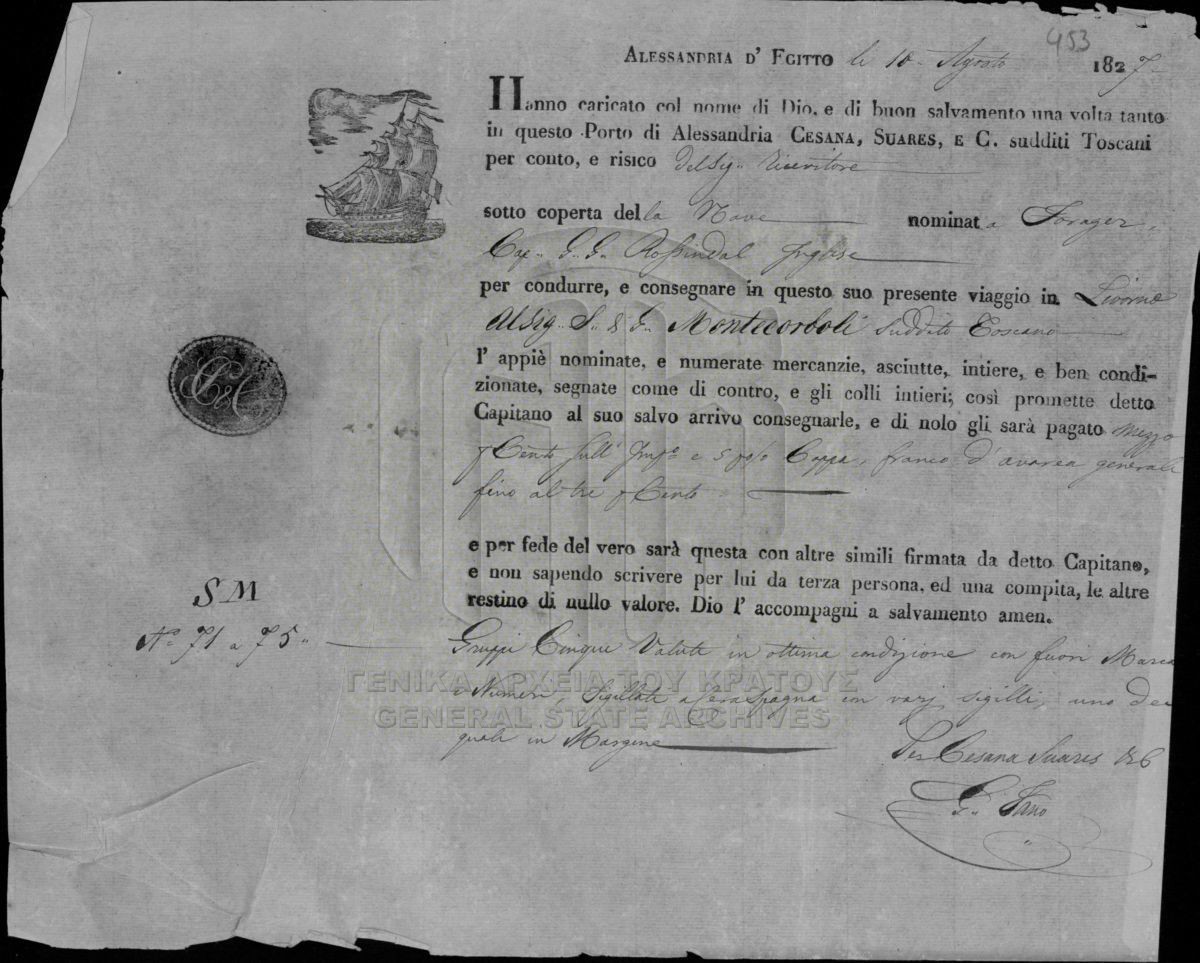 453
ALESSANDRIA D' EGITTO li 10 Agosto 1827
Hanno caricato col nome di Dio, e di buon salvamento una volta tanto
in questo Porto di Alessandria CESANA, SUARES, E C. sudditi Toscani
per conto, e risico del Sig.. Ricevitore
sotto coperta della Nave nominata Forager
Cap.. G.. G. Inglese
per condurre, e consegnare in questo suo presente viaggio in Livorno
Al Sig.. S.. & G.. Montecorboli suddito Toscano
l' appiè nominate, e numerate mercanzie, asciutte, intiere, e ben condi-
zionate, segnate come di contro, e gli colli intieri; così promette detto
Capitano al suo salvo arrivo consegnarle, e di nolo gli sarà pagato mezzo
Cento sull' e 5 Cappa, franco d'avarea generali
fino al tre Cento
e per fede del vero sarà questa con altre simili firmata da detto Capitano,
e non sapendo scrivere per lui da terza persona, ed una compita, le altre
restino di nullo valore. Dio l' accompagni a salvamento amen.
C&C
SM
N° 71 a 75..
Gruppi Cinque Valute in ottima condizione con fuori Marca
e Numeri Sigillati a Cera Spagna con varj sigilli, uno dei
quali in Margine
ΓΕΝΙΚΑ ΑΡΧΕΙΑ ΤΟΥ ΚΡΑΤΟΥΣ
GENERAL STATE ARCHIVES
Per Cesana Suares & C
G.. Fano